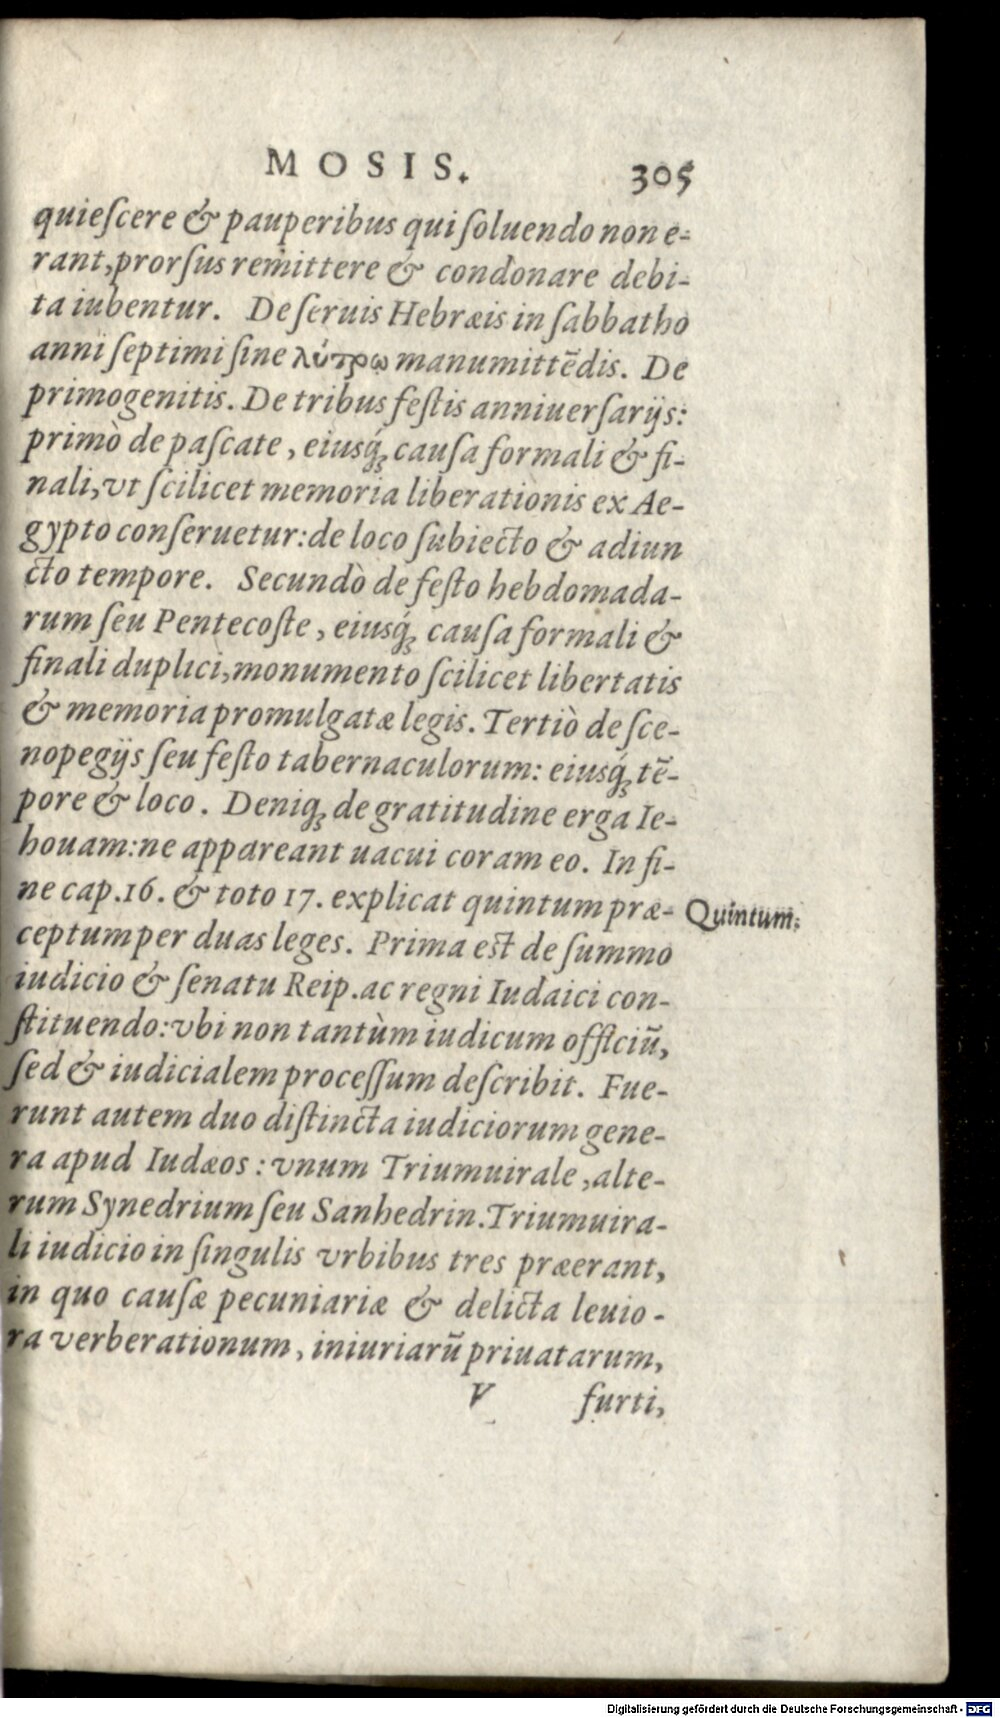 MOSIS. 305
quieſcere & pauperibus qui ſoluendo non e-
rant, prorſus remittere & condonare debi-
ta iubentur. De ſeruis Hebræis in ſabbatho
anni ſeptimi ſine λύτρω manumittēdis. De
primogenitis. De tribus feſtis anniuerſarijs:
primò de paſcate, eiusq́ꝫ cauſa formali & fi-
nali, vt ſcilicet memoria liberationis ex Ae-
gypto conſeruetur: de loco ſubiecto & adiun
cto tempore. Secundò de feſto hebdomada-
rum ſeu Pentecoſte, eiusq́ꝫ cauſa formali &
finali duplici, monumento ſcilicet libertatis
& memoria promulgatæ legis. Tertiò de ſce-
nopegijs ſeu feſto tabernaculorum: eiusq́ꝫ tē-
pore & loco. Deniqꝫ de gratitudine erga Ie-
houam: ne appareant uacui coram eo. In fi-
ne cap. 16. & toto 17. explicat quintum præ- Quintum:
ceptum per duas leges. Prima eſt de ſummo
iudicio & ſenatu Reip. ac regni Iudaici con-
ſtituendo: vbi non tantùm iudicum officiū,
ſed & iudicialem proceſſum deſcribit. Fue-
runt autem duo diſtincta iudiciorum gene-
ra apud Iudæos: vnum Triumuirale, alte-
rum Synedrium ſeu Sanhedrin. Triumuira-
li iudicio in ſingulis vrbibus tres præerant,
in quo cauſæ pecuniariæ & delicta leuio-
ra verberationum, iniuriarū priuatarum,
V furti,
Digitalisierung gefördert durch die Deutsche Forschungsgemeinschaft - DFG